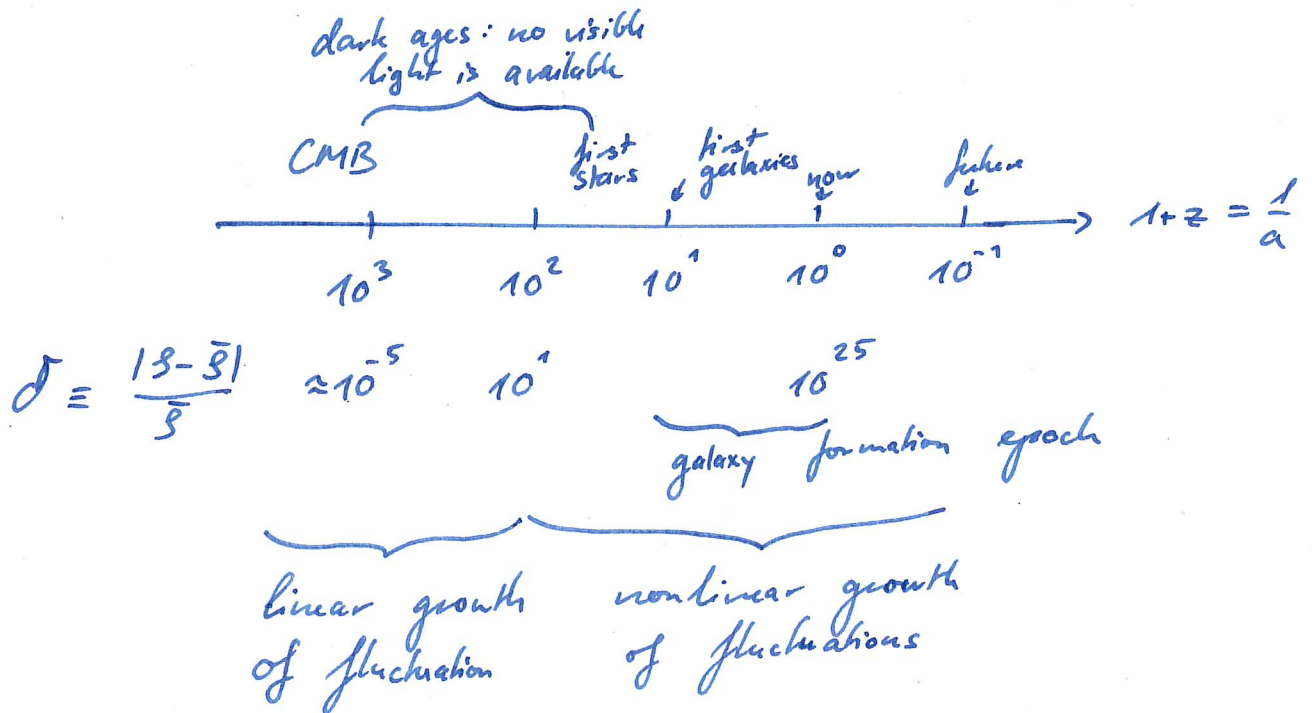 dark ages: no visible
light is available
CMB
first
stars
first
galaxies
now
future
1+z = 1/a
10³ 10² 10¹ 10⁰ 10⁻¹
δ ≡ |ρ-ρ̄|/ρ̄ ≈10⁻⁵ 10¹ 10²⁵
galaxy formation epoch
linear growth
of fluctuation
nonlinear growth
of fluctuations